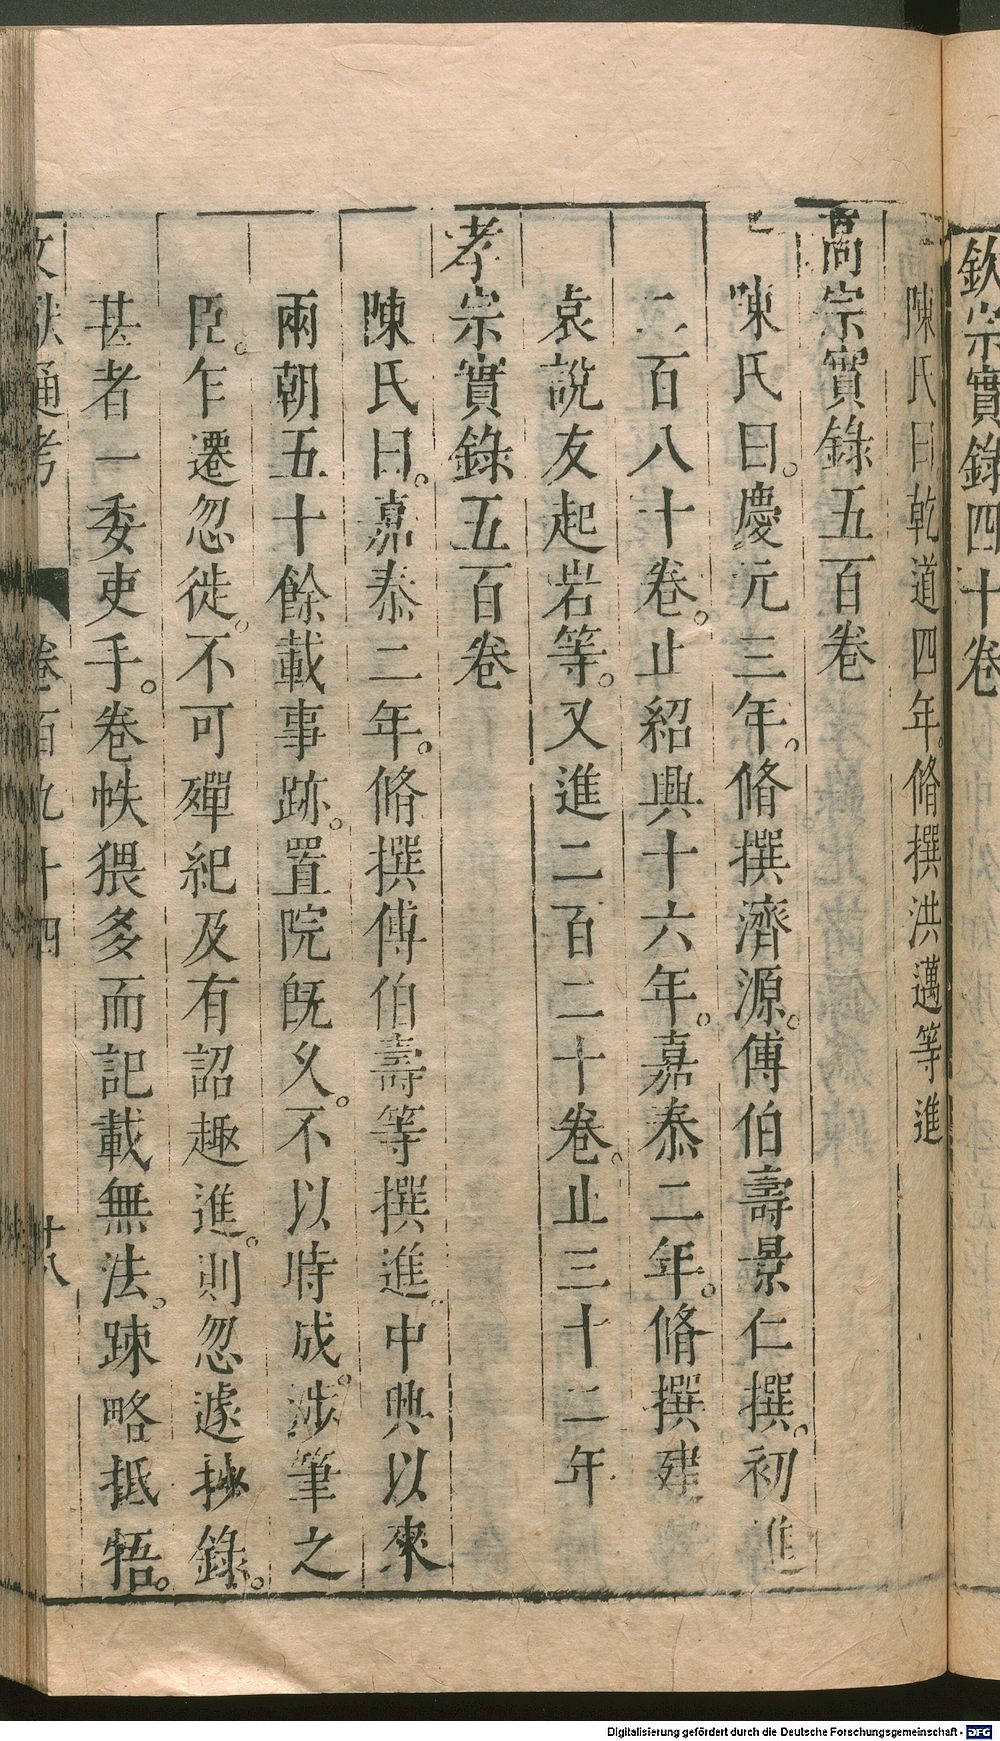 欽宗實錄四十卷
陳氏曰乾道四年。脩撰洪邁等進
高宗實錄五百卷
陳氏曰。慶元三年。脩撰濟源。傅伯壽景仁撰。初進
二百八十卷。止紹興十六年。嘉泰二年。脩撰建
袁說友起岩等。又進二百二十卷。止三十二年
孝宗實錄五百卷
陳氏曰。嘉泰二年。脩撰傅伯壽等撰進。中興以來
兩朝五十餘載事跡。置院旣久。不以時成。涉筆之
臣。乍遷忽徙。不可殫紀及有詔趣進。則忽遽抄錄。
甚者一委吏手。卷帙猥多而記載無法。踈略抵牾。
文獻通考 卷百九十四 十八
Digitalisierung gefördert durch die Deutsche Forschungsgemeinschaft - DFG